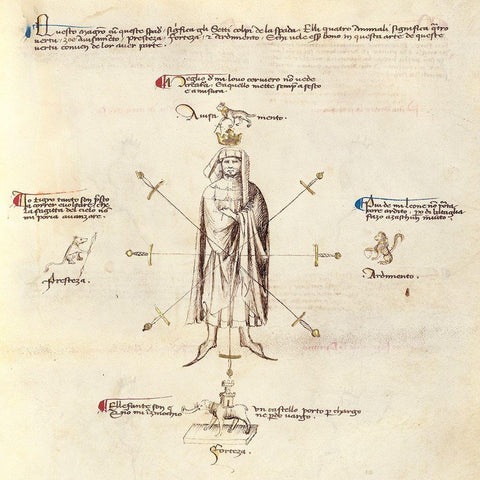 Questo magro cum queste spad' significa gli Setti colpi de la spada. Elli quatro animali significa q̃tro
vertu, zoe auisamẽto, Presteza, Forteza, & Ardimento. E chi vole ess̃ bono in questa arte de queste
vertu conuen de lor auer parte.
Meglio d mi louo ceruero nõ vede
creatã. E aquello mette semp̃ a sesto
e a misura.
Auisa mento.
Io tigro tanto son p̃sto
a correr e uoltare, che
la sagitta del cielo nõ
mi poria auanzare.
Presteza.
Più de mi leone nõ porta
core ardito, po di bataglia
fazo a zaschun inuito.
Ardimento.
Ellefante son e vn castello porto p chargo
E nõ mi inzinochio ne pdo vargo.
Forteza.